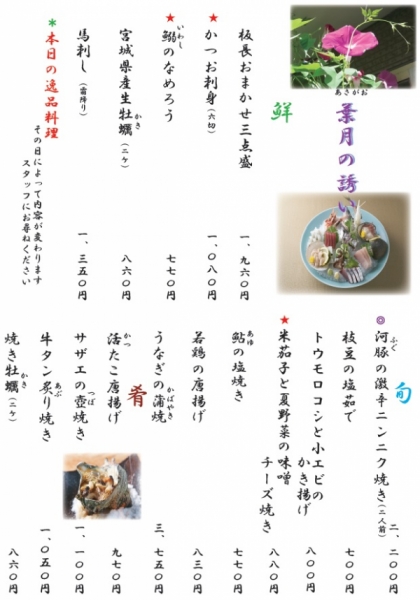 あさがお
葉月の誘い
鮮
板長おまかせ三点盛 一、九六〇円
★かつお刺身(六切) 一、〇八〇円
★鰯のなめろう 七七〇円
いわし
宮城県産生牡蠣(二ケ) 八六〇円
かき
馬刺し(霜降り) 一、三五〇円
*本日の逸品料理
その日によって内容が変わります
スタッフにお尋ねください
旬
◎河豚の激辛ニンニク焼き(二人前) 二、二〇〇円
ふぐ
枝豆の塩茹で 七〇〇円
トウモロコシと小エビの
かき揚げ 八〇〇円
★米茄子と夏野菜の味噌
チーズ焼き 八八〇円
鮎の塩焼き 七七〇円
あゆ
若鶏の唐揚げ 八三〇円
うなぎの蒲焼 三、七五〇円
かばやき
肴
活たこ唐揚げ 九七〇円
かつ
サザエの壺焼き 一、一〇〇円
つぼ
牛タン炙り焼き 一、〇五〇円
あぶ
焼き牡蠣(二ケ) 八六〇円
かき